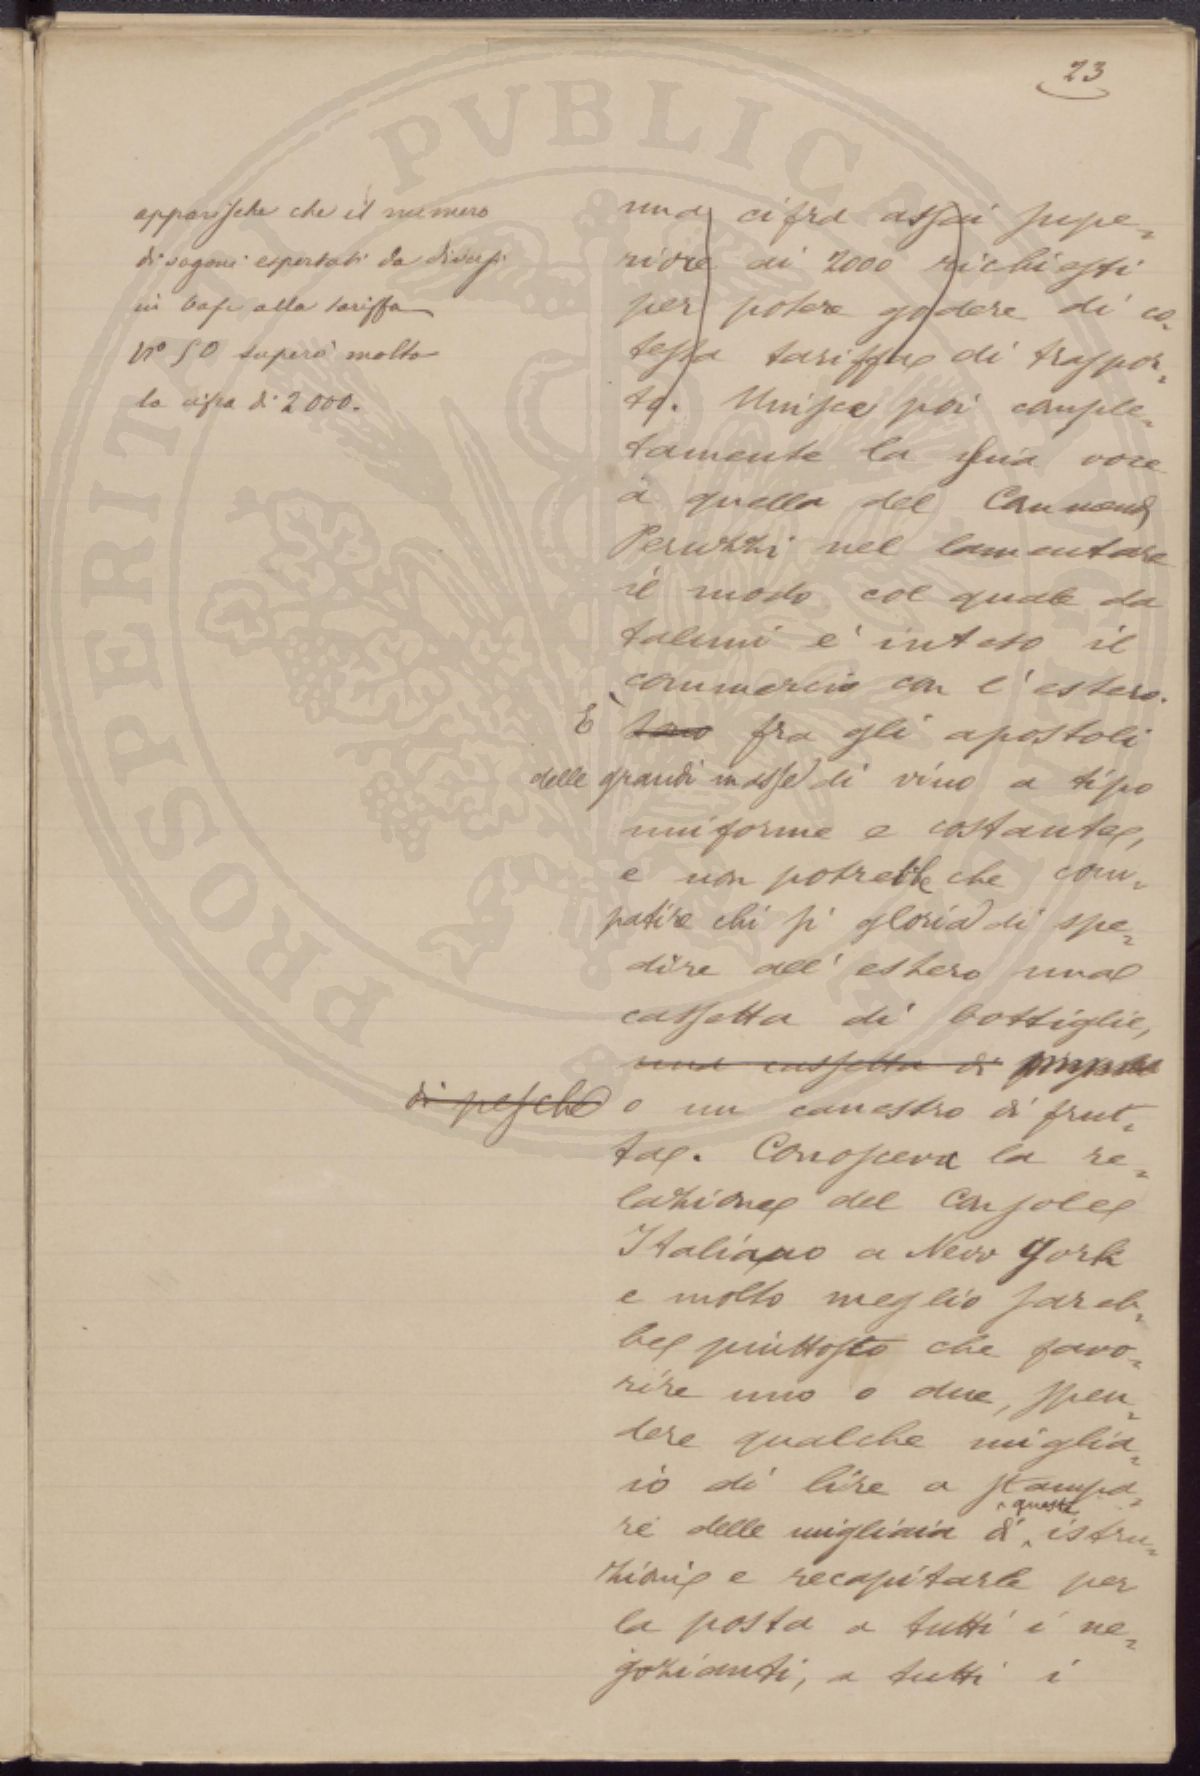 23
apparische che il numero
di vagoni esportati da diversi
in base alla tariffa
Nº 50 superò molto
la cifra di 2000.
una cifra assai supe=
riore ai 2000 richiesti
per potere godere di co=
testa tariffa di traspor=
to. Unisce poi comple=
tamente la sua voce
a quella del Commend
Peruzzi nel lamentare
il modo col quale da
taluni e' inteso il
commercio con l'estero.
E' sono fra gli apostoli
delle grandi masse di vino a tipo
uniforme e costante,
e non potrebbe che com=
patire chi si gloria di spe=
dire all'estero una
cassetta di bottiglie,
una cassetta di
di pesche o un canestro di frut=
ta. Conosceva la re=
lazione del Console
Italiano a New York
e molto meglio sareb=
be piuttosto che favo=
rire uno o due, spen=
dere qualche miglia=
io di lire a stampa=
queste
re delle migliaia di istru=
zioni e recapitarle per
la posta a tutti i ne=
gozianti, a tutti i
PROSPERITATI PVBLICAE AVGENDAE